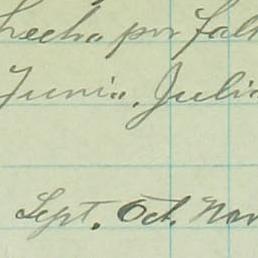 hecha por fal
Junio, Juli
Sept. Oct. Nov